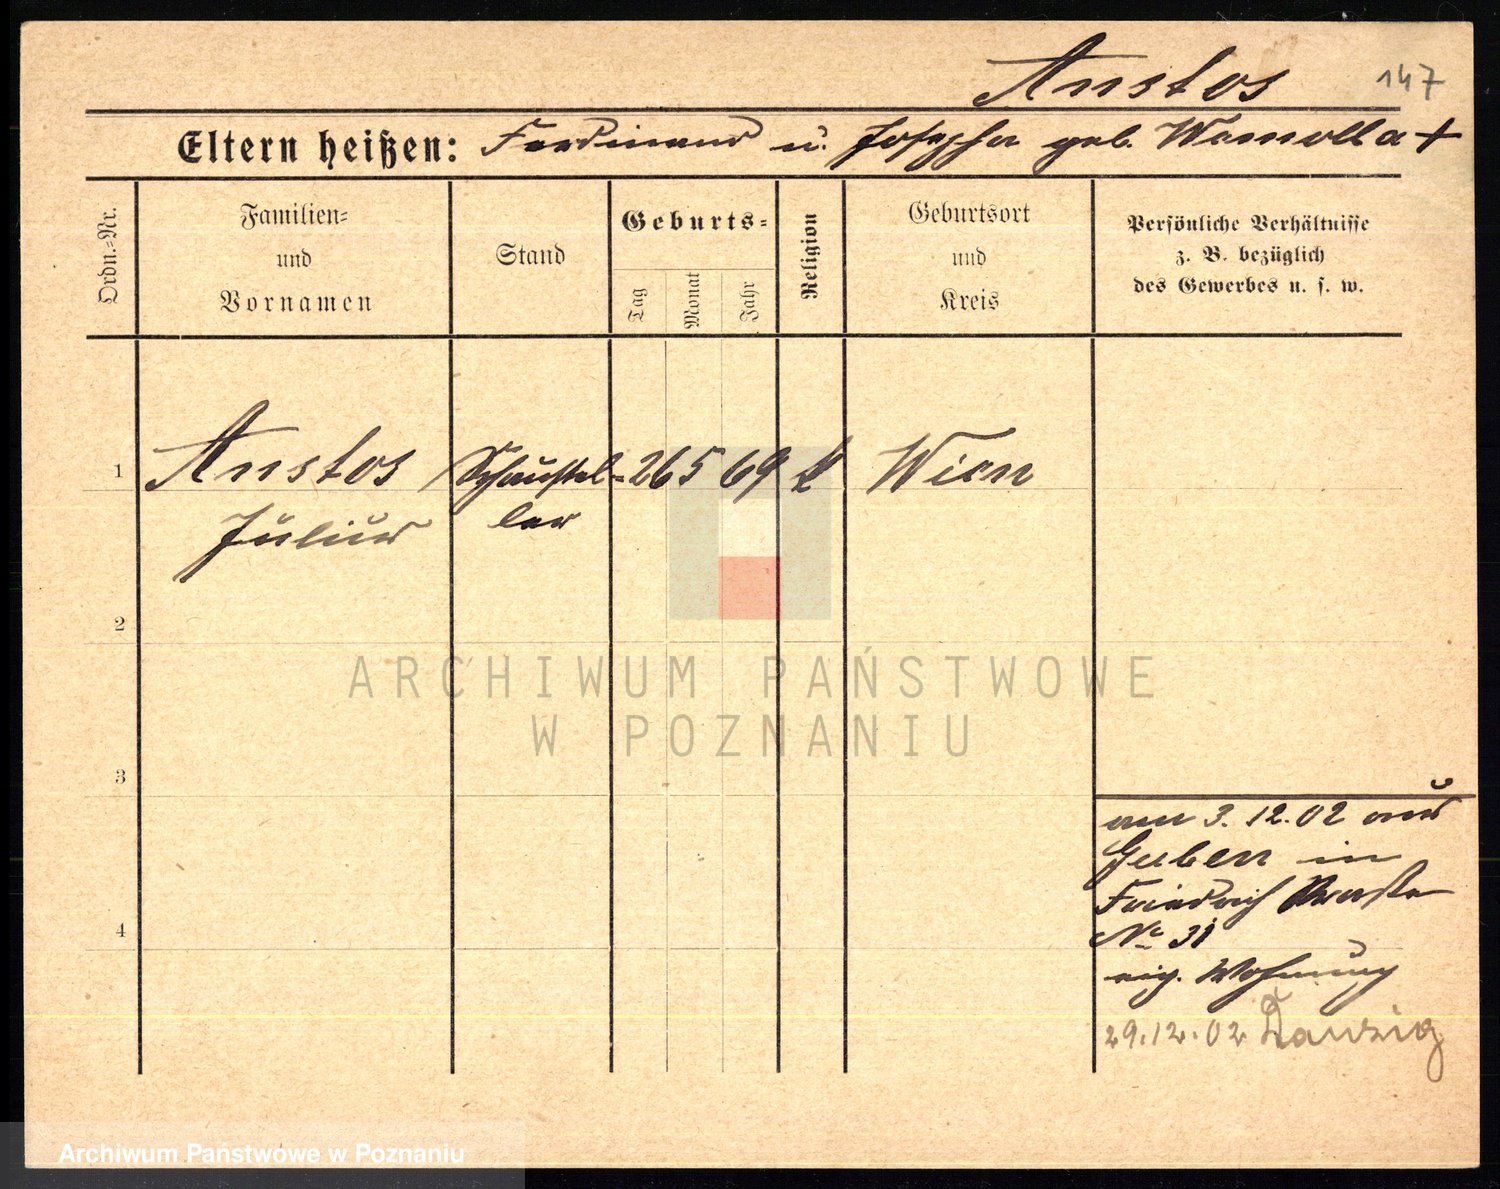 Anstos 147
Eltern heißen: Ferdinand u. Josepha geb. Wemolla +
Ordn.=Nr.
Familien=
und
Vornamen
Stand
Geburts=
Tag
Monat
Jahr
Religion
Geburtsort
und
Kreis
Persönliche Verhältnisse
z. B. bezüglich
des Gewerbes u. s. w.
1 Anstos Schaustel= 26 5 69 k Wien
Julius ler
2
3
am 3. 12. 02 aus
Guben in
Friedrich Straße
4 No 31
eig. Wohnung
29. 12. 02 Danzig
ARCHIWUM PAŃSTWOWE
W POZNANIU
Archiwum Państwowe w Poznaniu